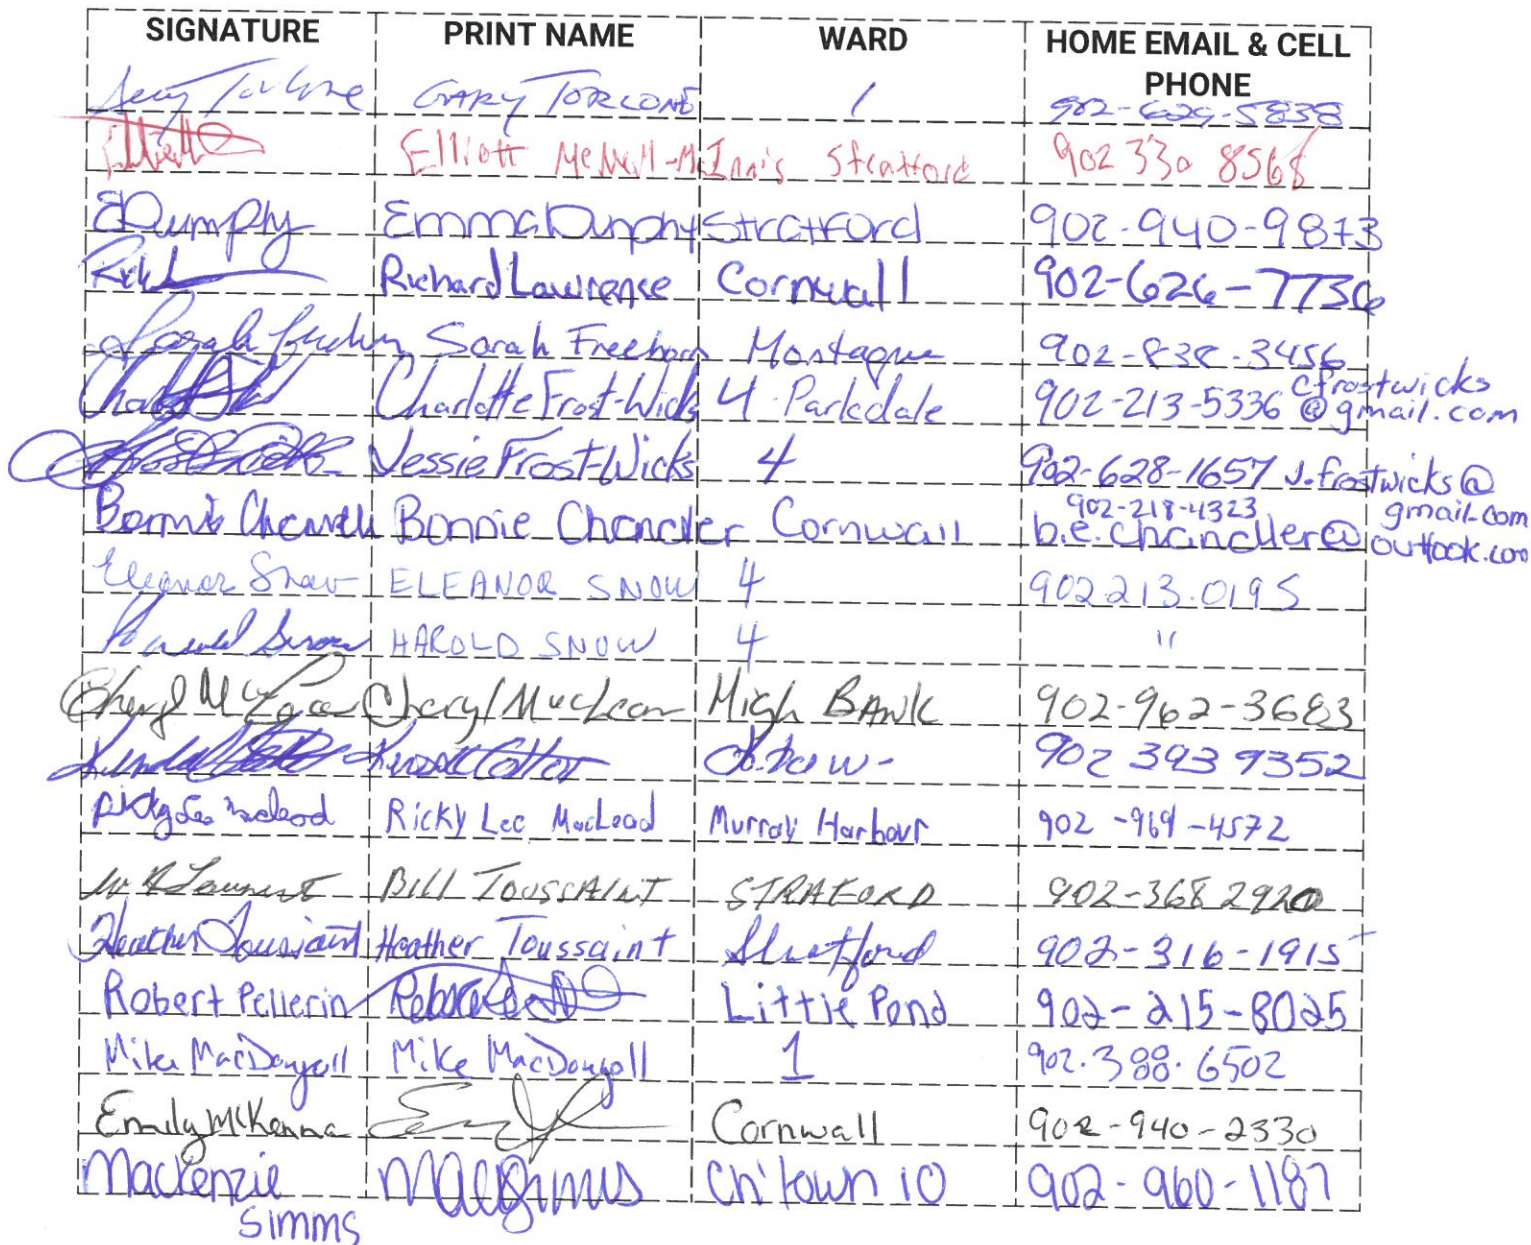 SIGNATURE PRINT NAME WARD HOME EMAIL & CELL
PHONE
GARY TORLONE 1 902-629-5838
Elliott McNeill-McInnis Stratford 902 330 8568
EDunphy Emma Dunphy Stratford 902-940-9873
Richard Lawrence Cornwall 902-626-7736
Sarah Freeborn Montague 902-838-3456
Charlotte Frost-Wicks 4 Parkdale 902-213-5336 cfrostwicks
@gmail.com
Jessie Frost-Wicks 4 902-628-1657 j.frostwicks@
gmail.com
902-218-4323
Bonnie Chandler Bonnie Chandler Cornwall b.e.chandler@outlook.com
Eleanor Snow ELEANOR SNOW 4 902.213.0195
Harold Snow HAROLD SNOW 4 "
Cheryl McLean Cheryl MacLean High BANK 902-962-3683
902 393 9352
Ricky Lee MacLeod Murray Harbour 902-969-4572
BILL TOUSSAINT STRATFORD 902-368 2920
Heather Toussaint Heather Toussaint Stratford 902-316-1915
Robert Pellerin Little Pond 902-215-8025
Mike MacDougall Mike MacDougall 1 902.388.6502
Emily McKenna Cornwall 902-940-2330
Mackenzie Ch'town 10 902-960-1187
Simms